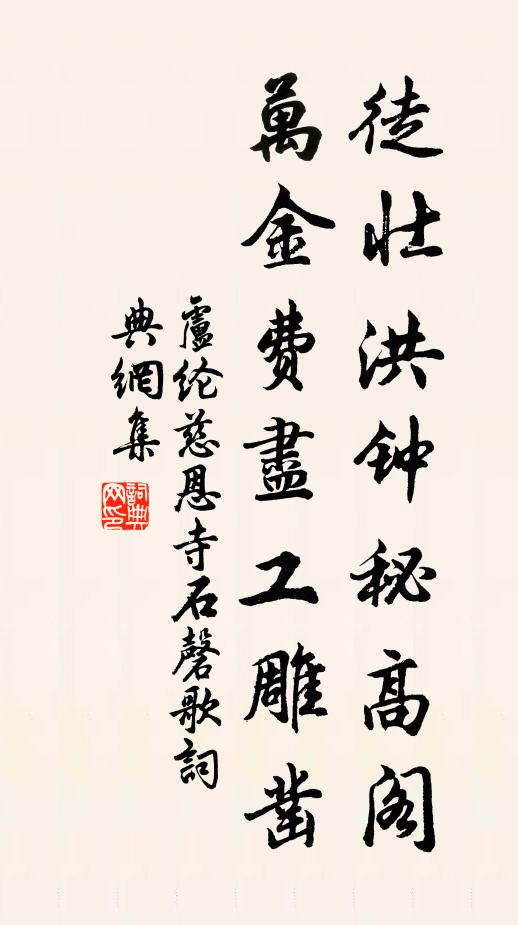 徒壮洪钟秘高阁
萬金費盡工雕凿
盧纶慈恩寺石磬歌詞
典網集
詞典网印